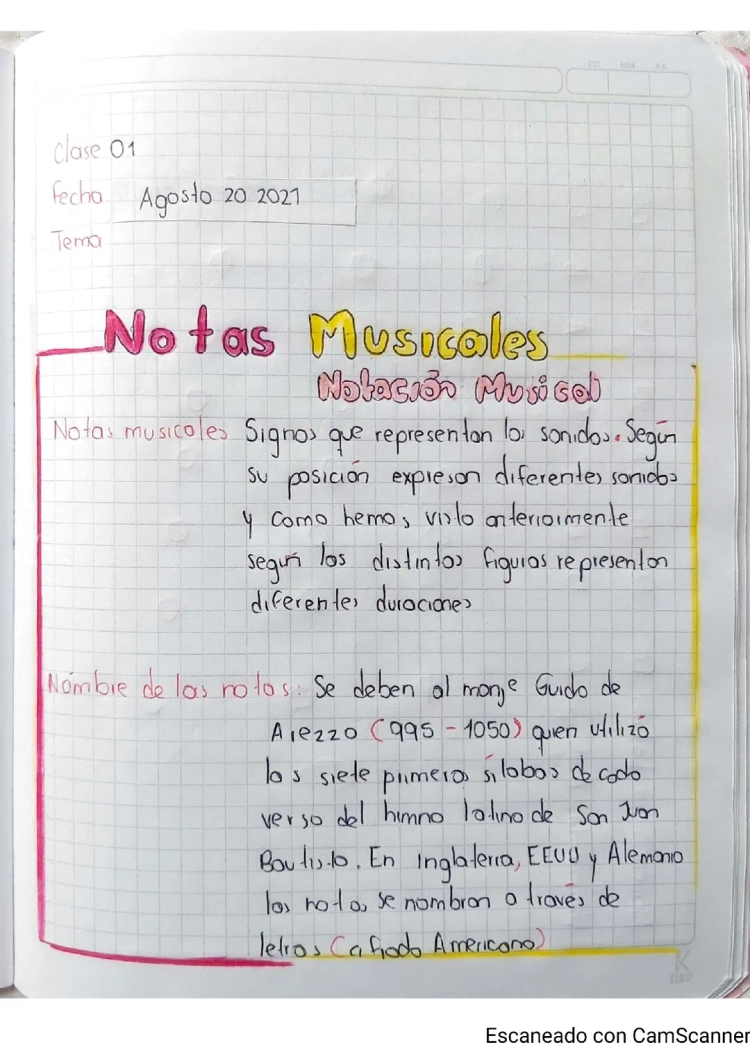 DD MM AA
Clase 01
fecha Agosto 20 2021
Tema
Notas Musicales
Notación Musical
Notas musicales Signos que representan los sonidos. Según
su posición expresan diferentes sonidos
y como hemos visto anteriormente
según los distintos figuras representan
diferentes duraciones
Nombre de las notas: Se deben al monje Guido de
Arezzo (995 - 1050) quien utilizó
las siete primeras sílabas de cada
verso del himno latino de San Juan
Bautista. En Inglaterra, EEUU y Alemania
las notas se nombran a través de
letras (cifrado Americano)
Escaneado con CamScanner